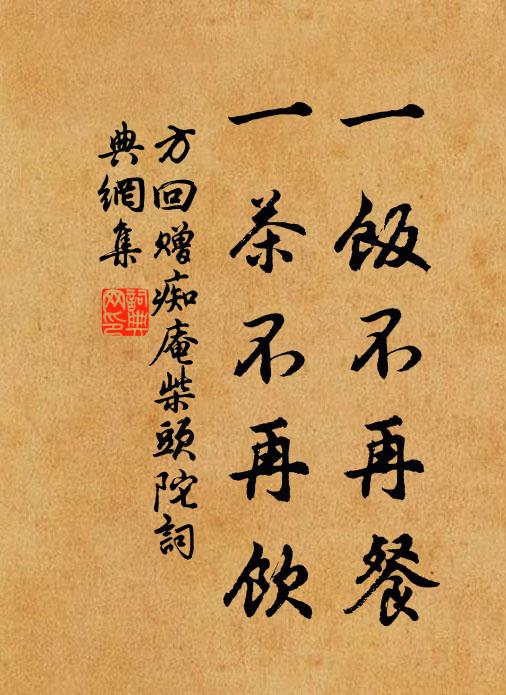 一飯不再餐
一茶不再飲
方回贈痴庵柴頭陀詞
典網集
詞典网印